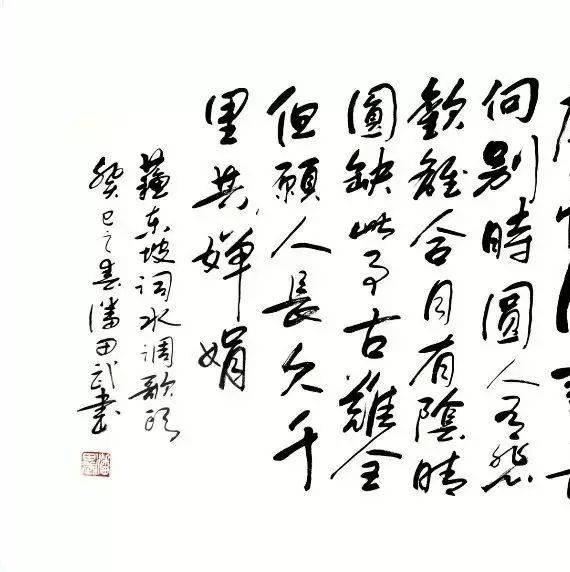 向别時圓人有悲
歡離合月有陰晴
圓缺此事古難全
但願人長久千
里共嬋娟
蘇东坡词水调歌头
癸巳之春潘田武書